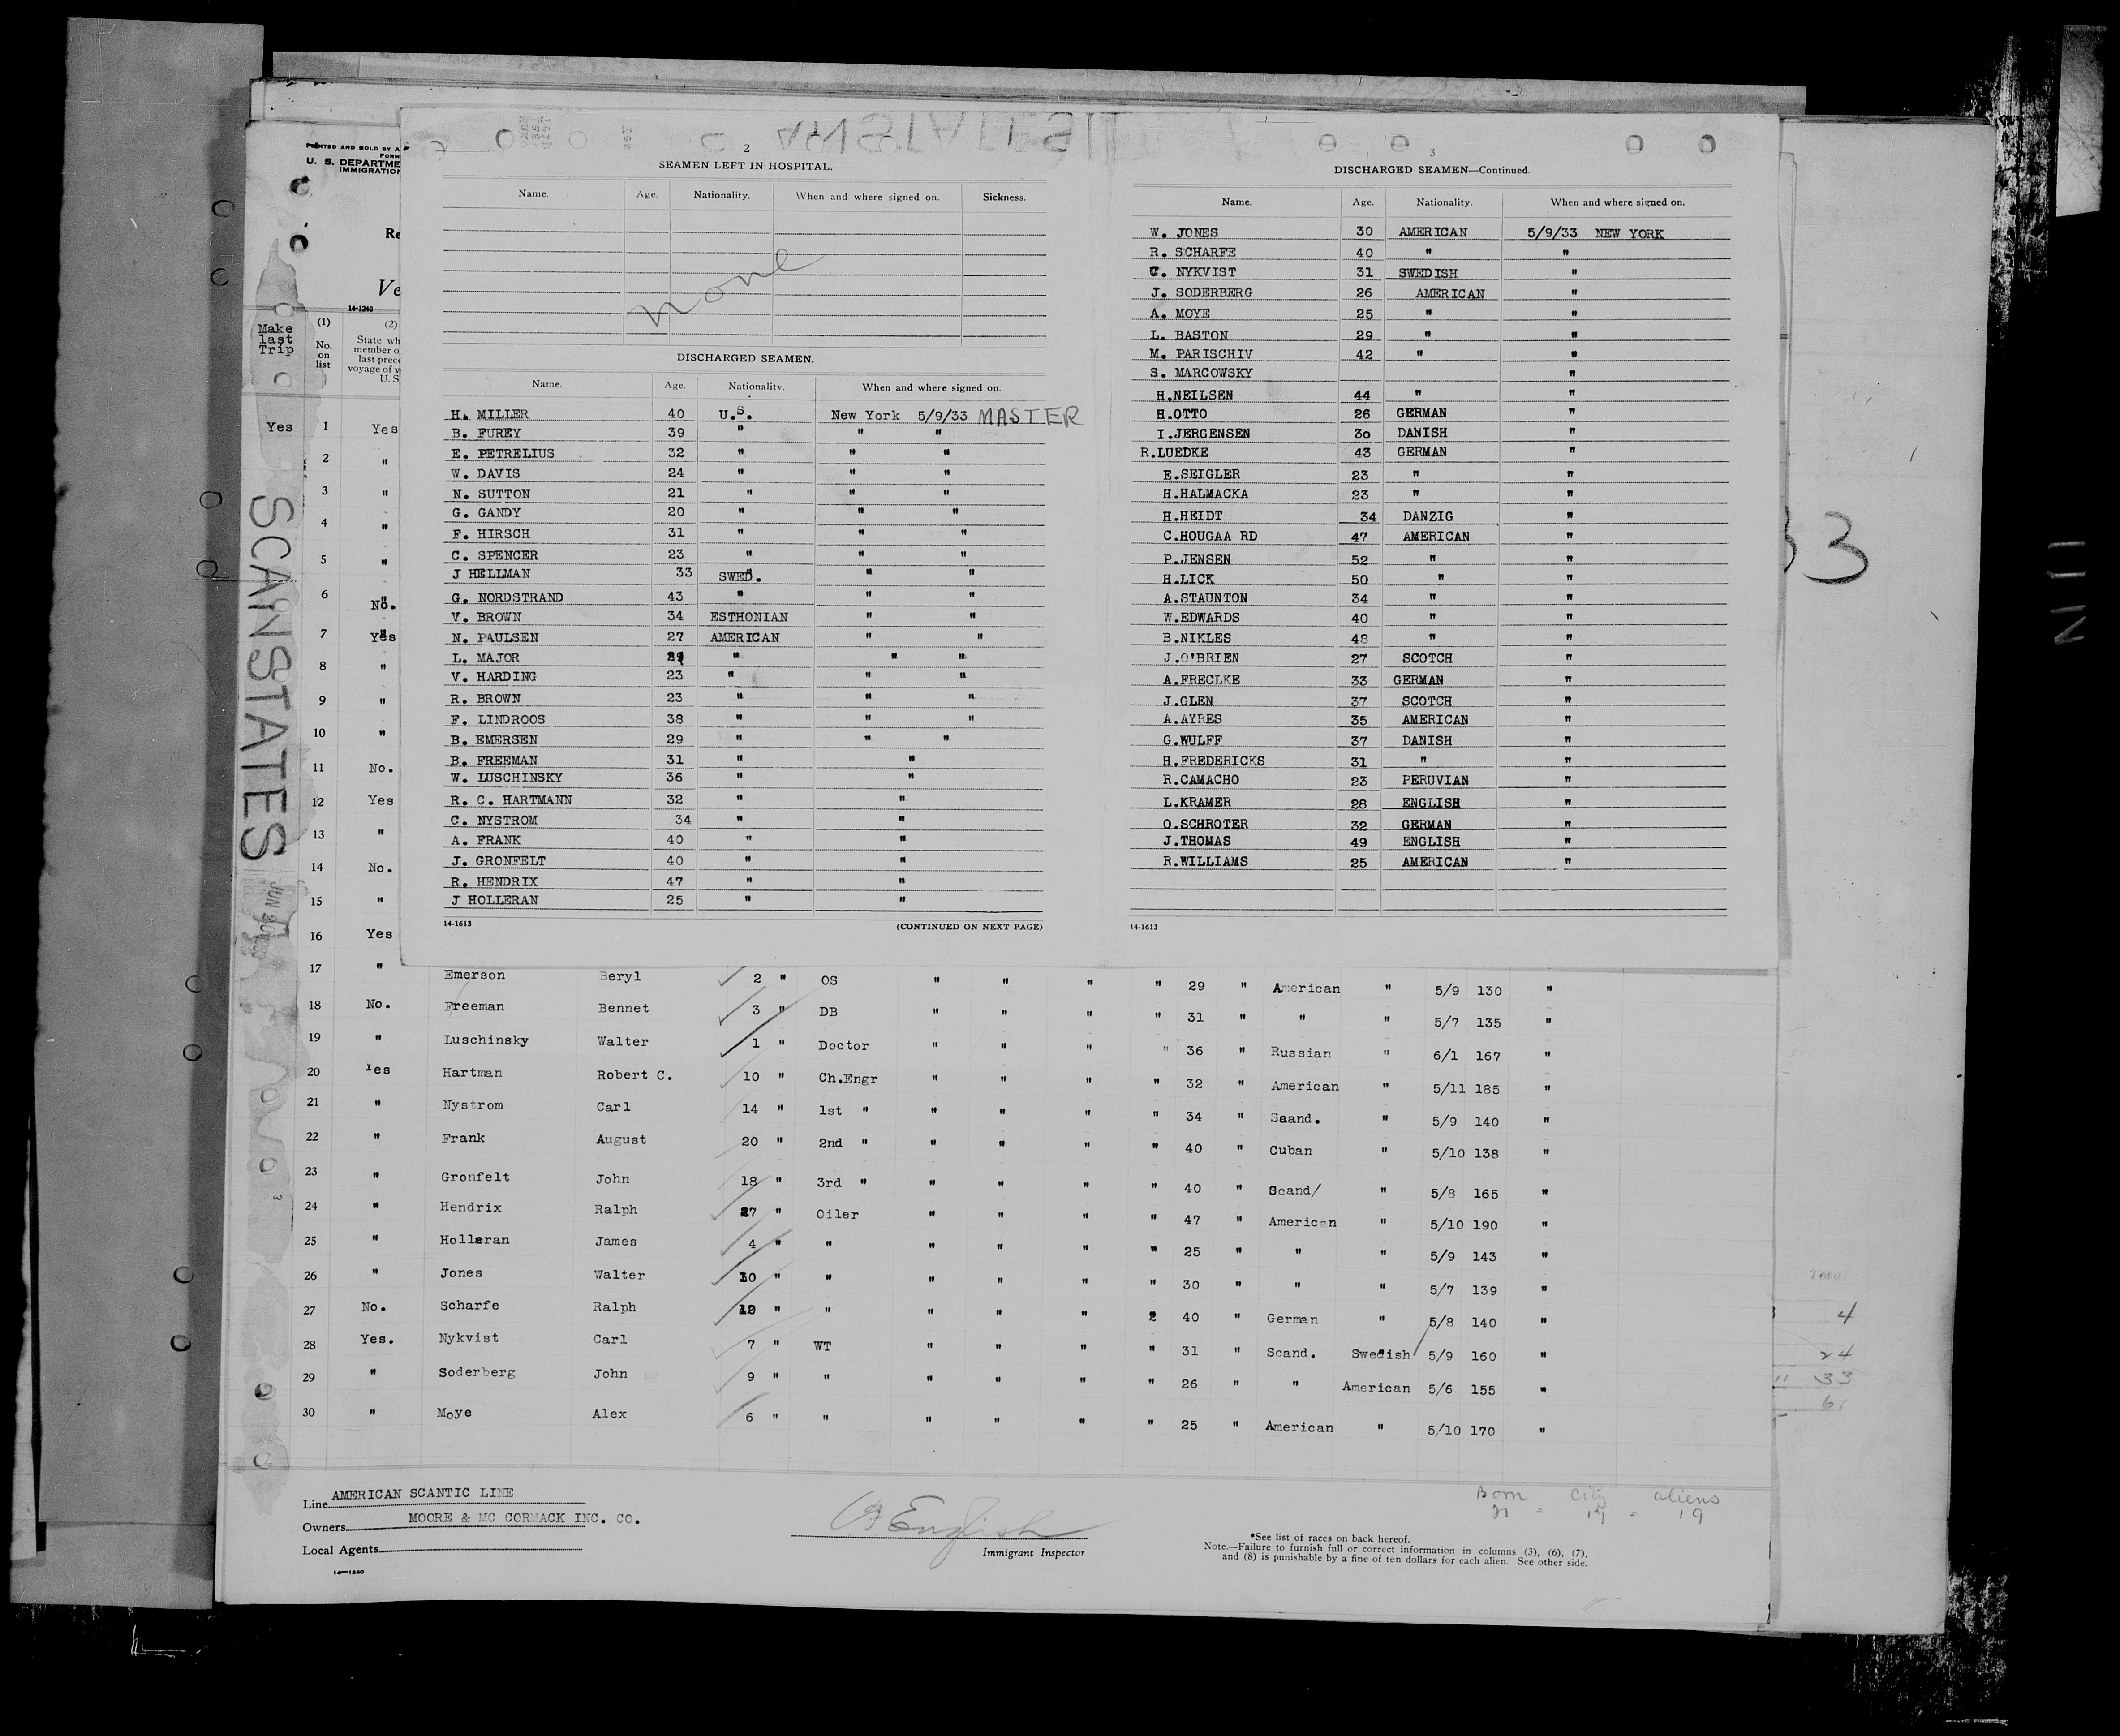 PRINTED AND SOLD BY A
FORM
U. S. DEPARTME
IMMIGRATION
Re
Ve
14-1240
Make last Trip
(1) No. on list
(2) State wh
member o
last prece
voyage of v
U. S.
SCANSTATES
2
SEAMEN LEFT IN HOSPITAL.
Name. Age. Nationality. When and where signed on. Sickness.
none
DISCHARGED SEAMEN.
Name. Age. Nationality. When and where signed on.
H. MILLER 40 U.S. New York 5/9/33 MASTER
B. FUREY 39 " " "
E. PETRELIUS 32 " " "
W. DAVIS 24 " " "
N. SUTTON 21 " " "
G. GANDY 20 " " "
F. HIRSCH 31 " " "
C. SPENCER 23 " " "
J HELLMAN 33 SWED. " "
G. NORDSTRAND 43 " " "
V. BROWN 34 ESTHONIAN " "
N. PAULSEN 27 AMERICAN " "
L. MAJOR " " "
V. HARDING 23 " " "
R. BROWN 23 " " "
F. LINDROOS 38 " " "
B. EMERSEN 29 " " "
B. FREEMAN 31 " "
W. LUSCHINSKY 36 " "
R. C. HARTMANN 32 " "
C. NYSTROM 34 " "
A. FRANK 40 " "
J. GRONFELT 40 " "
R. HENDRIX 47 " "
J HOLLERAN 25 " "
14-1613 (CONTINUED ON NEXT PAGE)
3
DISCHARGED SEAMEN—Continued.
Name. Age. Nationality. When and where signed on.
W. JONES 30 AMERICAN 5/9/33 NEW YORK
R. SCHARFE 40 " "
C. NYKVIST 31 SWEDISH "
J. SODERBERG 26 AMERICAN "
A. MOYE 25 " "
L. BASTON 29 " "
M. PARISCHIV 42 " "
S. MARCOWSKY "
H.NEILSEN 44 " "
H.OTTO 26 GERMAN "
I.JERGENSEN 30 DANISH "
R.LUEDKE 43 GERMAN "
E.SEIGLER 23 " "
H.HALMACKA 23 " "
H.HEIDT 34 DANZIG "
C.HOUGAA RD 47 AMERICAN "
P.JENSEN 52 " "
H.LICK 50 " "
A.STAUNTON 34 " "
W.EDWARDS 40 " "
B.NIKLES 48 " "
J.O'BRIEN 27 SCOTCH "
A.FRECLKE 33 GERMAN "
J.GLEN 37 SCOTCH "
A.AYRES 35 AMERICAN "
G.WULFF 37 DANISH "
H.FREDERICKS 31 " "
R.CAMACHO 23 PERUVIAN "
L.KRAMER 28 ENGLISH "
O.SCHROTER 32 GERMAN "
J.THOMAS 49 ENGLISH "
R.WILLIAMS 25 AMERICAN "
14-1613
Yes 1 Yes
2 "
3 "
4 "
5 "
6 " No.
7 Yes
8 "
9 "
10 "
11 No.
12 Yes
13 "
14 No.
15 "
16 Yes
17 " Emerson Beryl 2 " OS " " " " 29 " American " 5/9 130 "
18 No. Freeman Bennet 3 " DB " " " " 31 " " " 5/7 135 "
19 " Luschinsky Walter 1 " Doctor " " " " 36 " Russian " 6/1 167 "
20 Yes Hartman Robert C. 10 " Ch.Engr " " " " 32 " American " 5/11 185 "
21 " Nystrom Carl 14 " 1st " " " " " 34 " Saand. " 5/9 140 "
22 " Frank August 20 " 2nd " " " " " 40 " Cuban " 5/10 138 "
23 " Gronfelt John 18 " 3rd " " " " " 40 " Scand/ " 5/8 165 "
24 " Hendrix Ralph 27 " Oiler " " " " 47 " American " 5/10 190 "
25 " Holleran James 4 " " " " " " 25 " " " 5/9 143 "
26 " Jones Walter 10 " " " " " " 30 " " " 5/7 139 "
27 No. Scharfe Ralph " " " " " 2 40 " German " 5/8 140 "
28 Yes. Nykvist Carl 7 " WT " " " " 31 " Scand. Swedish 5/9 160 "
29 " Soderberg John 9 " " " " " " 26 " " American 5/6 155 "
30 " Moye Alex 6 " " " " " " 25 " American " 5/10 170 "
Line AMERICAN SCANTIC LINE
Owners MOORE & MC CORMACK INC. CO.
Local Agents
14—1240
English
Immigrant Inspector
Born City aliens
21 = 19 = 19
*See list of races on back hereof.
Note.—Failure to furnish full or correct information in columns (3), (6), (7),
and (8) is punishable by a fine of ten dollars for each alien. See other side.
33
4
24
33
61